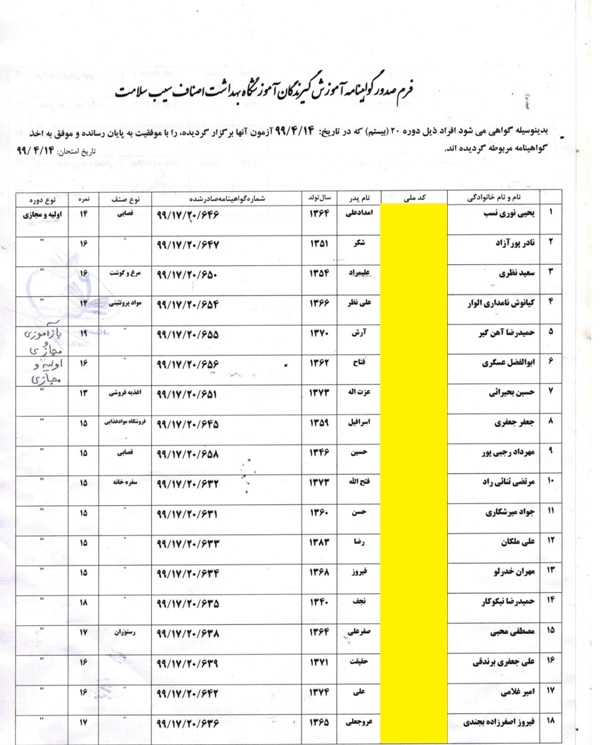 فرم صدور گواهینامه آموزش گیرندگان آموزشگاه بهداشت اصناف سیب سلامت
بدینوسیله گواهی می شود افراد ذیل دوره ۲۰ (بیستم) که در تاریخ: ۹۹/۴/۱۴ آزمون آنها برگزار گردیده، را با موفقیت به پایان رسانده و موفق به اخذ
گواهینامه مربوطه گردیده اند. تاریخ امتحان: ۹۹/۴/۱۴
نام و نام خانوادگی کد ملی نام پدر سال تولد شماره گواهینامه صادر شده نوع صنف نمره نوع دوره
۱ یحیی نوری نسب امدادعلی ۱۳۶۴ ۹۹/۱۷/۲۰/۶۴۶ قصابی ۱۴ اولیه و مجازی
۲ نادر پورآزاد شکر ۱۳۵۱ ۹۹/۱۷/۲۰/۶۴۷ " ۱۶ "
۳ سعید نظری علیمراد ۱۳۵۴ ۹۹/۱۷/۲۰/۶۵۰ مرغ و گوشت ۱۶ "
۴ کیانوش نامداری الوار علی نظر ۱۳۶۶ ۹۹/۱۷/۲۰/۶۵۴ مواد پروتئینی ۱۴ "
۵ حمیدرضا آهن گیر آرش ۱۳۷۰ ۹۹/۱۷/۲۰/۶۵۵ " ۱۹ بازآموزی و مجازی
۶ ابوالفضل عسگری فتاح ۱۳۶۲ ۹۹/۱۷/۲۰/۶۵۶ " ۱۶ اولیه و مجازی
۷ حسین بحیرائی عزت اله ۱۳۷۳ ۹۹/۱۷/۲۰/۶۵۱ اغذیه فروشی ۱۳ "
۸ جعفر جعفری اسرافیل ۱۳۵۹ ۹۹/۱۷/۲۰/۶۴۵ فروشگاه موادغذایی ۱۵ "
۹ مهرداد رجبی پور حسین ۱۳۴۶ ۹۹/۱۷/۲۰/۶۵۸ قصابی ۱۵ "
۱۰ مرتضی ثنائی راد فتح الله ۱۳۷۳ ۹۹/۱۷/۲۰/۶۳۲ سفره خانه ۱۵ "
۱۱ جواد میرشکاری حسن ۱۳۶۰ ۹۹/۱۷/۲۰/۶۳۱ " ۱۵ "
۱۲ علی ملکان رضا ۱۳۸۳ ۹۹/۱۷/۲۰/۶۳۳ " ۱۵ "
۱۳ مهران خدرلو فیروز ۱۳۶۸ ۹۹/۱۷/۲۰/۶۳۴ " ۱۵ "
۱۴ حمیدرضا نیکوکار نجف ۱۳۴۰ ۹۹/۱۷/۲۰/۶۳۵ " ۱۸ "
۱۵ مصطفی محبی صفرعلی ۱۳۶۴ ۹۹/۱۷/۲۰/۶۳۸ رستوران ۱۷ "
۱۶ علی جعفری برندقی حقیقت ۱۳۷۱ ۹۹/۱۷/۲۰/۶۳۹ " ۱۶ "
۱۷ امیر غلامی علی ۱۳۷۴ ۹۹/۱۷/۲۰/۶۴۲ " ۱۶ "
۱۸ فیروز اصغرزاده بجندی عروجعلی ۱۳۶۵ ۹۹/۱۷/۲۰/۶۳۶ " ۱۷ "